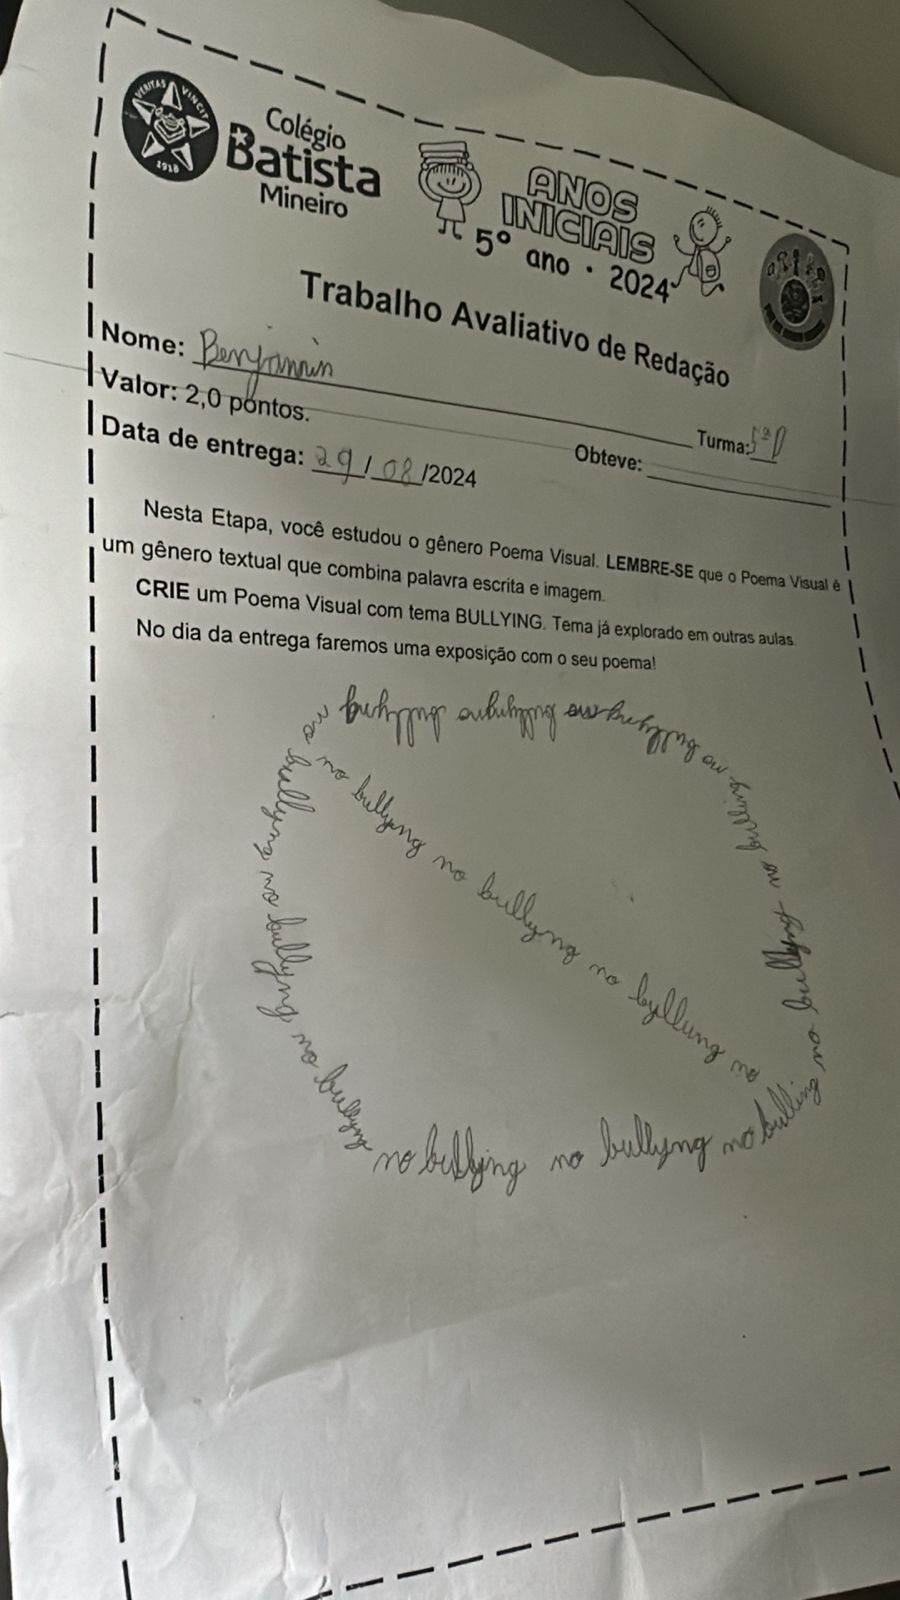 VERITAS VINCIT
1918
Colégio
Batista
Mineiro
ANOS
INICIAIS
5º ano • 2024
Trabalho Avaliativo de Redação
Nome: Benjamin
Turma: 5ºD
Valor: 2,0 pontos.
Obteve:
Data de entrega: 29/08/2024
Nesta Etapa, você estudou o gênero Poema Visual. LEMBRE-SE que o Poema Visual é
um gênero textual que combina palavra escrita e imagem.
CRIE um Poema Visual com tema BULLYING. Tema já explorado em outras aulas.
No dia da entrega faremos uma exposição com o seu poema!
no bullying no bullying no bullying
no bulling no bullyng no bulling
no bullyng no bullyng no byllung no
no bullyng no bullyng no bullyng
no bullying no bullyng